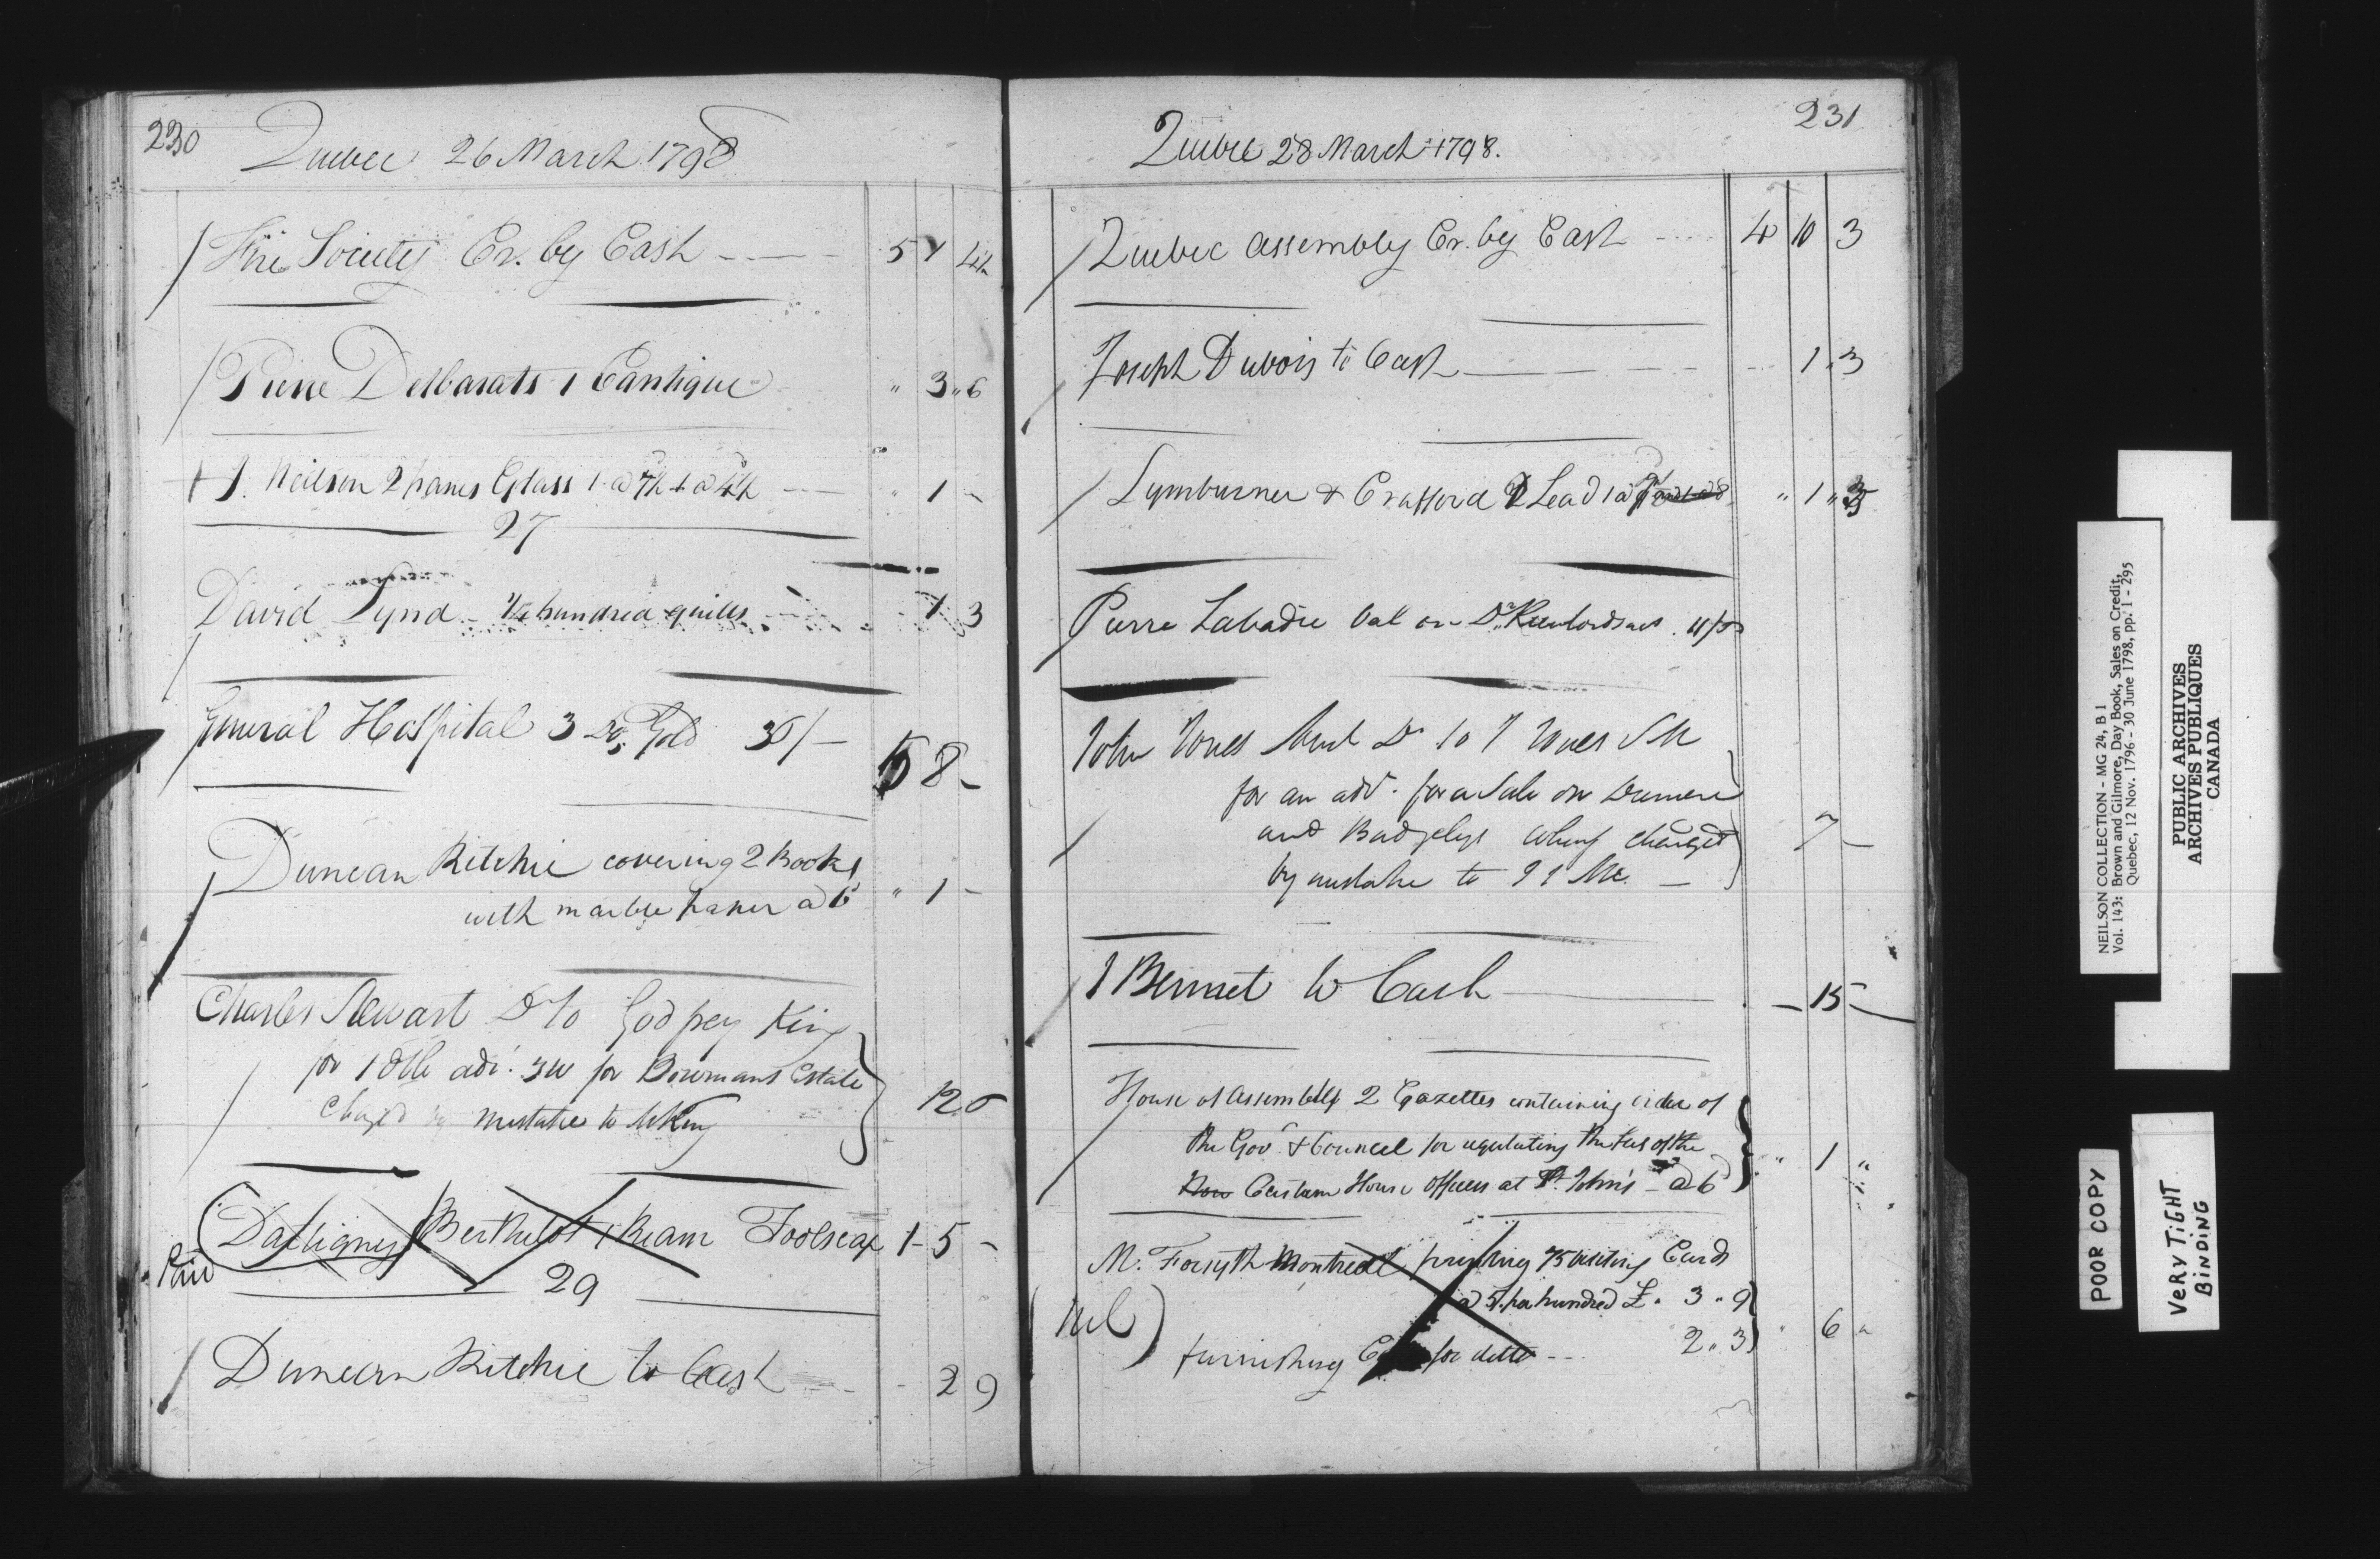 230
Quebec 26 March 1798
Fire Society Cr. by Cash 5 4
Pierre Desbarats 1 Cantique " 3 " 6
J. Neilson 2 panes Glass 1 a 7½ 1 a 4½ " 1 -
27
David Lynd - ¼ hundred quills 1 3
General Hospital 3 Gold 36/-
8 -
Duncan Ritchie covering 2 Books
with marble paper a 6 " 1 -
Charles Stewart Dr to Godfrey King
for 1 adv. 3w for Bowmans Estate
Charged by mistake to King 12 6
Dartigny Berthelot 1 Ream Foolscap 1 - 5 -
Paid
29
Duncan Ritchie to Cash 2 9
231
Quebec 28 March 1798.
Quebec Assembly Cr. by Cash 4 10 3
Joseph Dubois to Cash 1 . 3
Lymburner & Crafford Lead 1 a " 1 "
Pierre Labadie bal on Dr.
John Jones Dr to J Jones
for an adv. for a Sale on
and Badgelys Wharf charged
by mistake to 7 -
J Bennet to Cash - 15 -
House of Assembly 2 Gazettes containing order of
the Govr. & Council for regulating the fees of the
Custom House Officers at St. John's - a 6 " 1 "
M. Forsyth Montreal printing 75 visiting Cards
a 5/. per hundred £ " 3 " 9
(Nil)
furnishing for ditto 2 " 3 6 "
NEILSON COLLECTION - MG 24, B 1
Vol. 143: Brown and Gilmore, Day Book, Sales on Credit,
Quebec, 12 Nov. 1796 - 30 June 1798, pp. 1 - 295
PUBLIC ARCHIVES
ARCHIVES PUBLIQUES
CANADA
POOR COPY
VERY TIGHT
BINDING